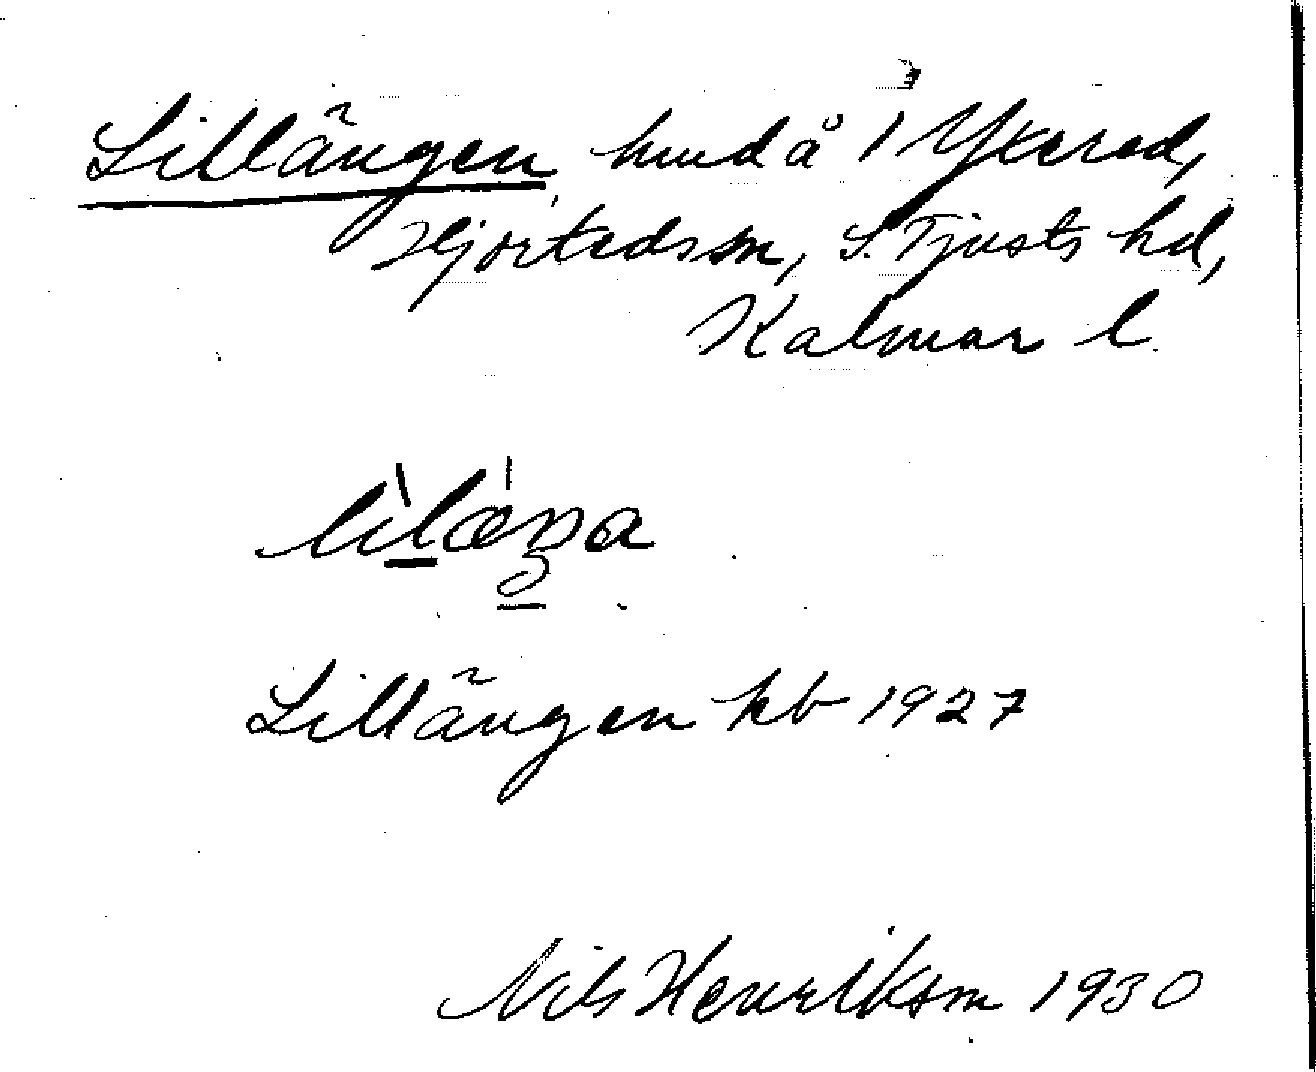 Lillängen hmd å 1 Ykered,
Hjortedssn, S. Tjusts hd,
Kalmar l.
Lillängen kb 1927
Nils Henriksson 1930